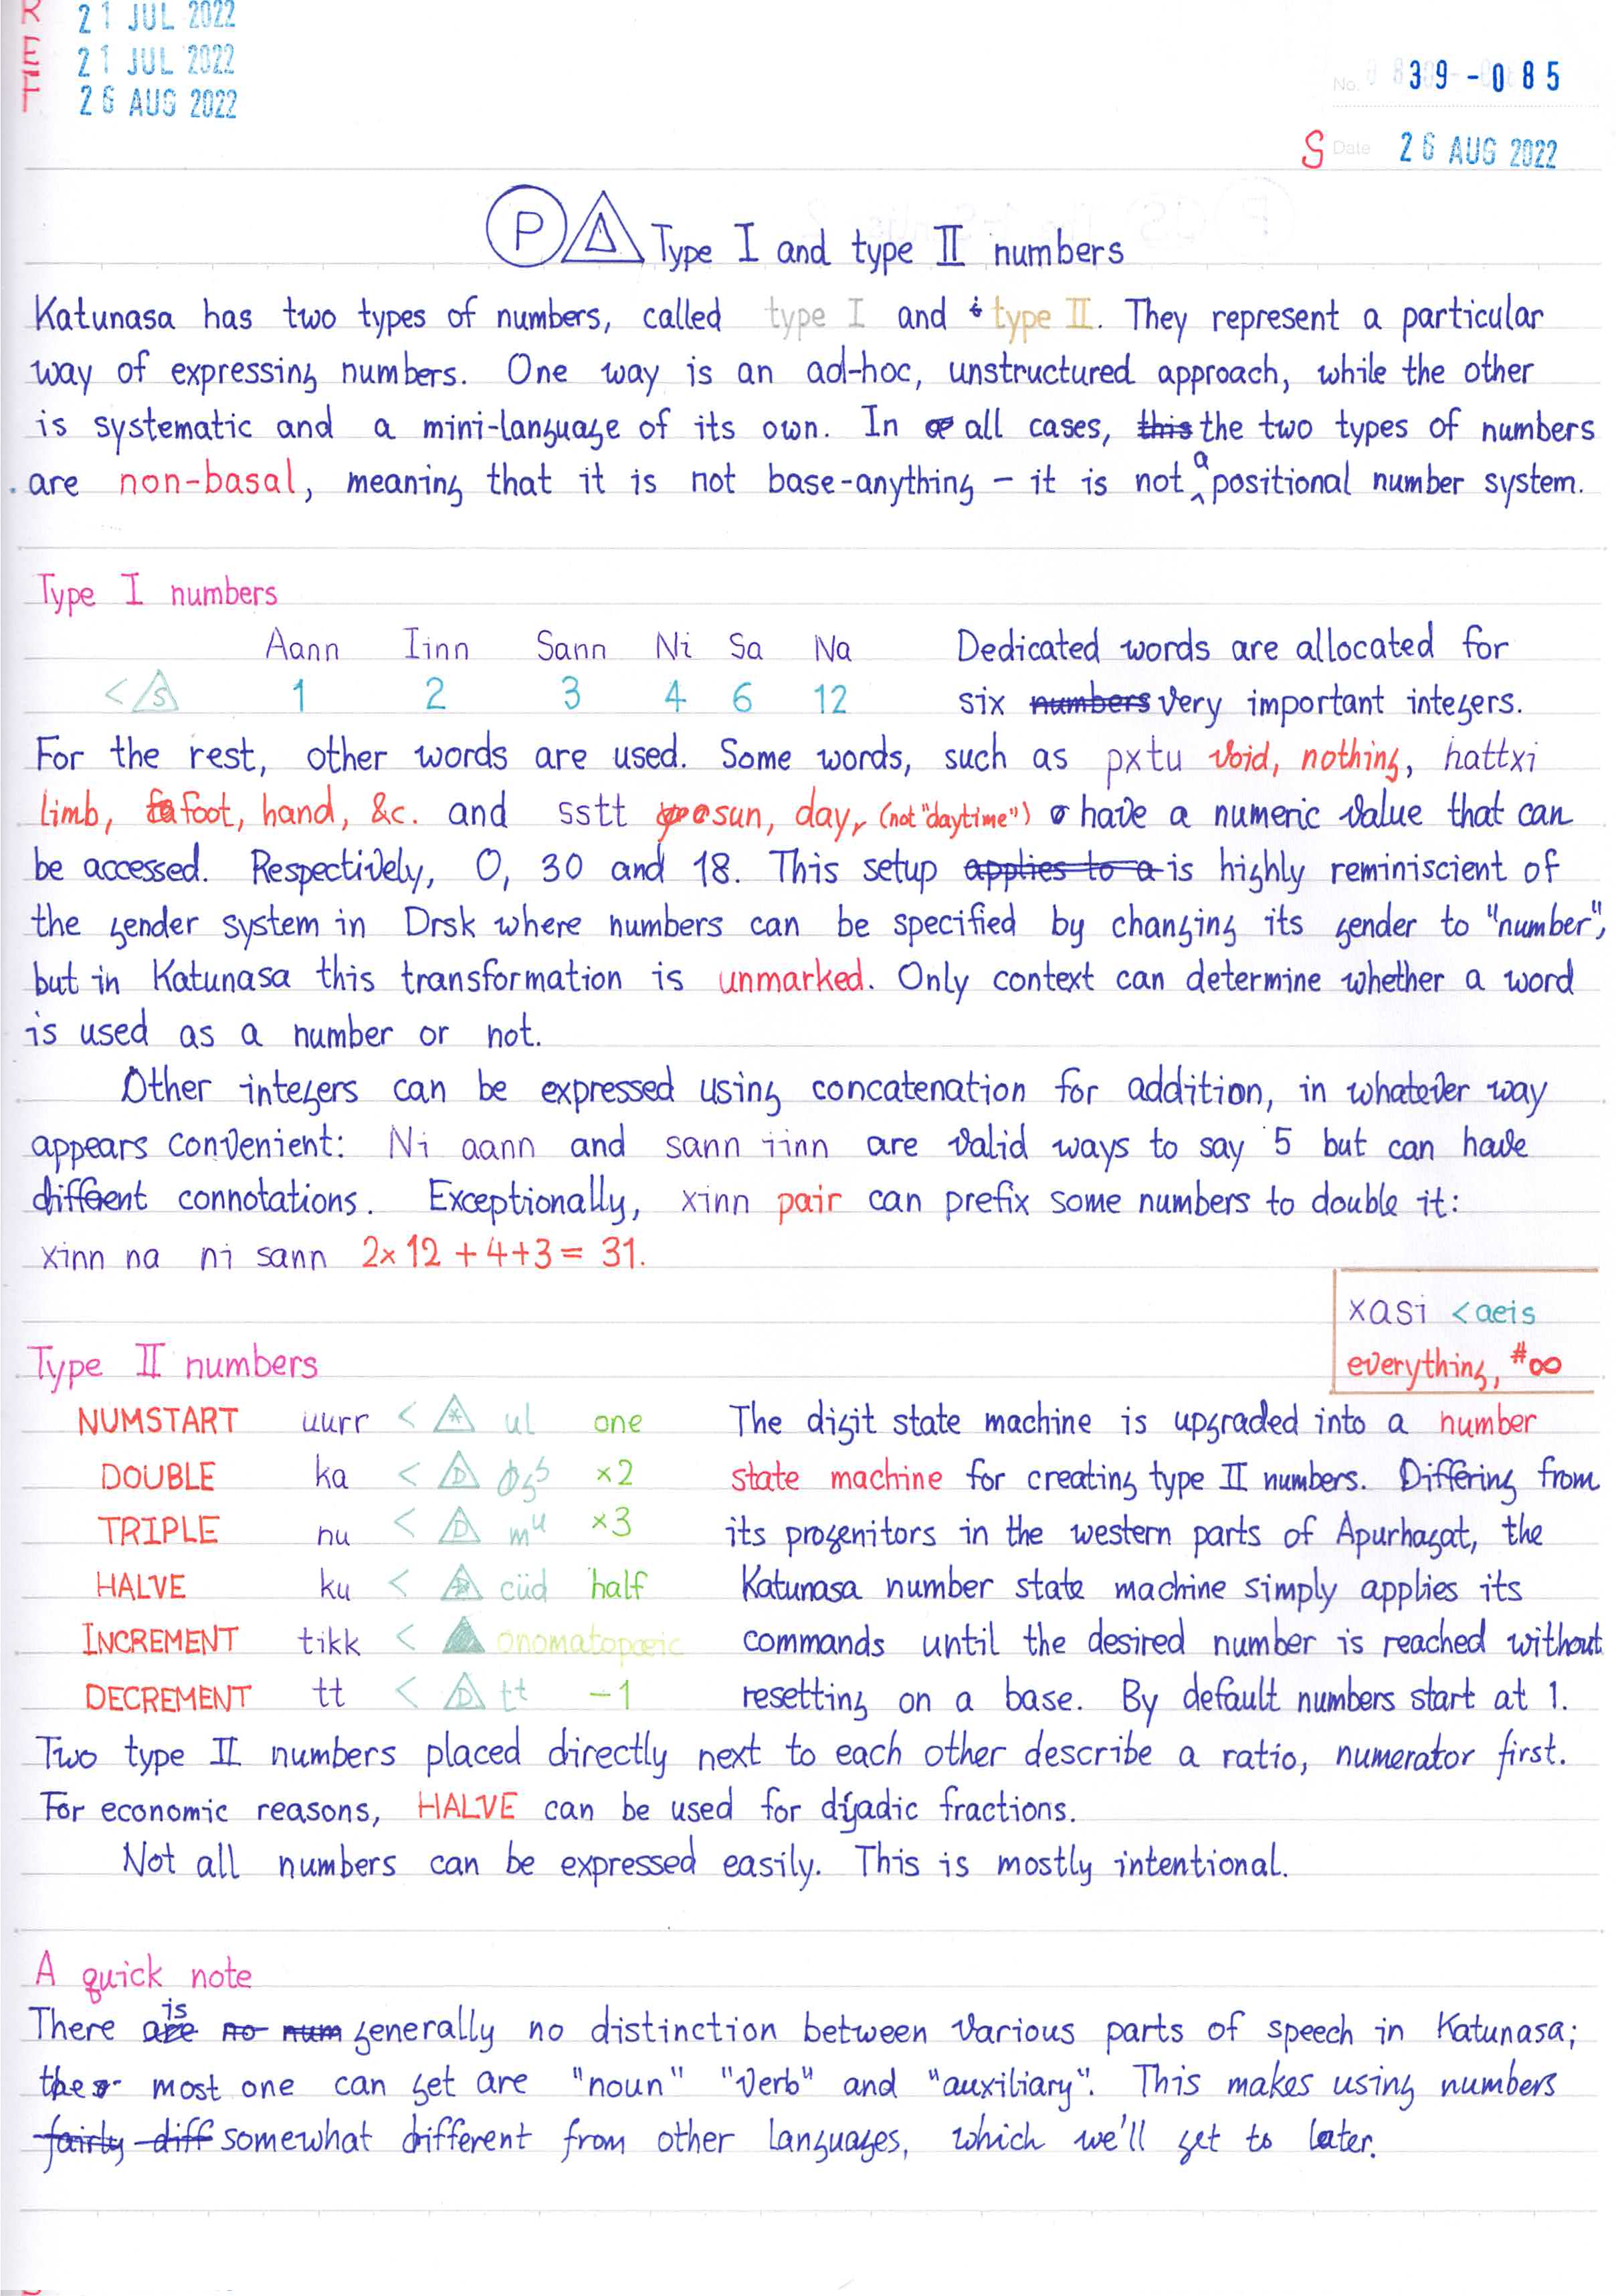 REF
21 JUL 2022
21 JUL 2022
26 AUG 2022
No. 39-085
S Date 26 AUG 2022
P Δ Type I and type II numbers
Katunasa has two types of numbers, called type I and type II. They represent a particular
way of expressing numbers. One way is an ad-hoc, unstructured approach, while the other
is systematic and a mini-language of its own. In all cases, this the two types of numbers
are non-basal, meaning that it is not base-anything – it is not a positional number system.
Type I numbers
Aann Iinn Sann Ni Sa Na Dedicated words are allocated for
< S 1 2 3 4 6 12 six numbers very important integers.
For the rest, other words are used. Some words, such as pxtu void, nothing, hattxi
limb, foot, hand, &c. and sstt sun, day, (not "daytime") have a numeric value that can
be accessed. Respectively, 0, 30 and 18. This setup applies to a is highly reminiscient of
the gender system in Drsk where numbers can be specified by changing its gender to "number",
but in Katunasa this transformation is unmarked. Only context can determine whether a word
is used as a number or not.
Other integers can be expressed using concatenation for addition, in whatever way
appears convenient: Ni aann and sann iinn are valid ways to say 5 but can have
different connotations. Exceptionally, xinn pair can prefix some numbers to double it:
xinn na ni sann 2×12+4+3=31.
xasi <aeis
everything, #∞
Type II numbers
NUMSTART uurr < * ul one The digit state machine is upgraded into a number
DOUBLE ka < D ×2 state machine for creating type II numbers. Differing from
TRIPLE nu < D mu ×3 its progenitors in the western parts of Apurhagat, the
HALVE ku < cüd half Katunasa number state machine simply applies its
INCREMENT tikk < onomatopœic commands until the desired number is reached without
DECREMENT tt < D tt -1 resetting on a base. By default numbers start at 1.
Two type II numbers placed directly next to each other describe a ratio, numerator first.
For economic reasons, HALVE can be used for dyadic fractions.
Not all numbers can be expressed easily. This is mostly intentional.
A quick note
There are is no num generally no distinction between various parts of speech in Katunasa;
the most one can get are "noun" "verb" and "auxiliary". This makes using numbers
fairly diff somewhat different from other languages, which we'll get to later.